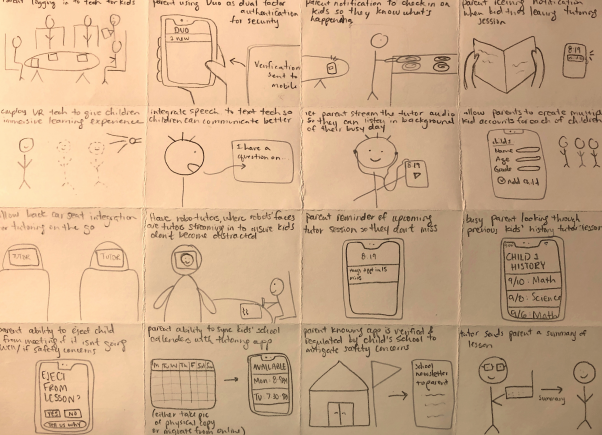 parent logging in to tech for kids
parent using Duo as dual factor
authentication
for security
DUO
1 new
Verification
sent to
mobile
parent notification to check in on
kids so they know what's
happening
parent notification
when kid tries leaving tutoring
session
8:19
employ VR tech to give children
immersive learning experience
integrate speech to text tech so
children can communicate better
I have a
question on...
let parent stream the tutor audio
so they can listen in background
of their busy day
8:19
allow parents to create multiple
kid accounts for each of children
child 1
Name
Age
Grade
Add child
allow back car seat integration
for tutoring on the go
TUTOR
TUTOR
Have robo-tutors, where robots' faces
are tutors streaming in to ensure kids
don't become distracted
parent reminder of upcoming
tutor session so they don't miss
8:19
in 15
busy parent looking through
previous kids' history tutor lesson
CHILD 1
HISTORY
9/10: Math
9/8: Science
9/6: Math
parent ability to eject child
from meeting if it isn't going
well / if safety concerns
EJECT
FROM
LESSON?
YES
NO
parent ability to sync kids' school
calendars with tutoring app
M T W Th F S S
AVAILABLE
Mon: 8 PM
Tu: 7:30 PM
(either take pic
of physical copy
or migrate from online)
parent knowing app is verified &
regulated by child's school to
mitigate safety concerns
School
newsletter
to parent
tutor sends parent a summary of
lesson
summary